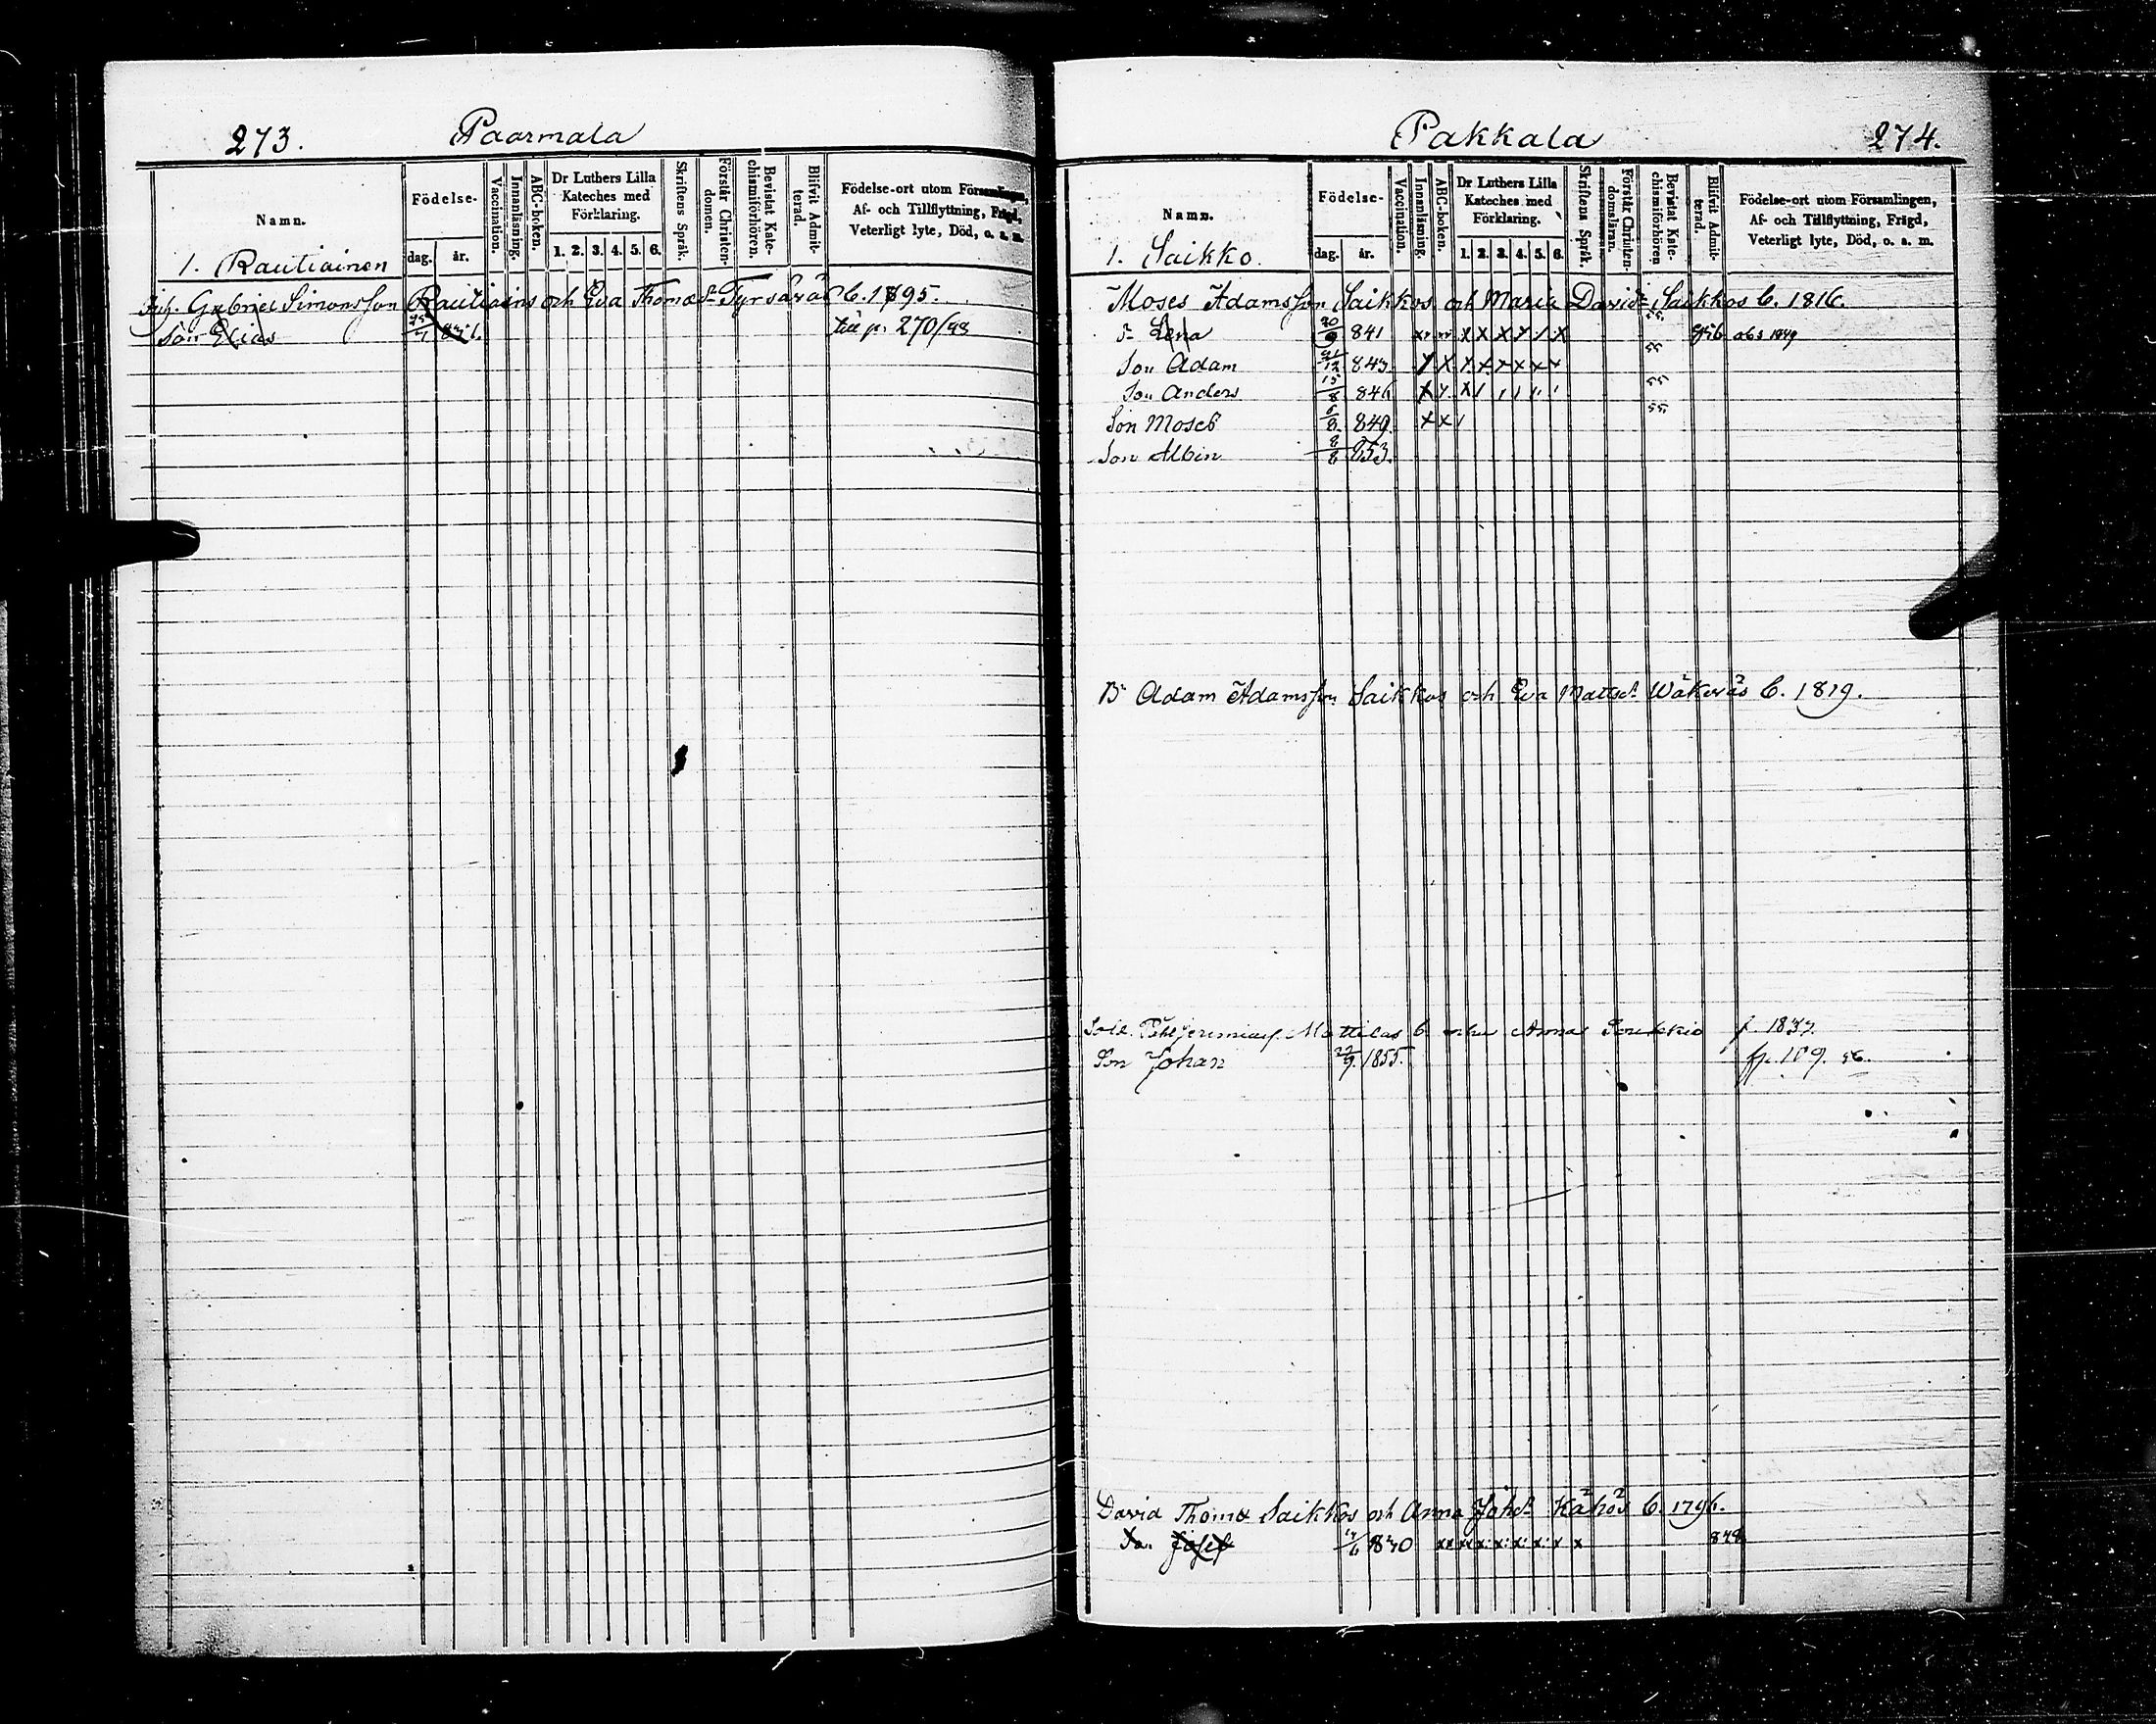 273. Paarmala
Namn.
Födelse-
dag. år.
Vaccination.
Innanläsning.
ABC-boken.
Dr Luthers Lilla Kateches med Förklaring.
1. 2. 3. 4. 5. 6.
Skriftens Språk.
Förstår Christendomen.
Bevistat Katechismiförhören.
Blifvit Admitterad.
Födelse-ort utom Församlingen,
Af- och Tillflyttning, Frägd,
Veterligt lyte, Död, o. s. m.
1. Rautiainen
Gabriel Simonsson Rautiains och Eva Thomæ Dr Tyrsäväs C. 1795.
Son Elias p. 270/
Pakkala 274.
Namn.
Födelse-
dag. år.
Vaccination.
Innanläsning.
ABC-boken.
Dr Luthers Lilla
Kateches med
Förklaring.
1. 2. 3. 4. 5. 6.
Skriftens Språk.
Förstår Christendomsläran.
Bevistat Katechismiförhören
Blifvit Admitterad.
Födelse-ort utom Församlingen,
Af- och Tillflyttning, Frägd,
Veterligt lyte, Död, o. s. m.
1. Saikko.
Moses Adamsson Saikkos och Maria Davids Saikkos C. 1816.
Lena 20/9 841 x x x x x / x
Son Adam 21/12 843 x x x x x x x x 55
Son Anders 15/8 846 x x x / 55
Son Moses 5/8 849 x x / 55
Son Albin 8/8 853.
Br Adam Adamsson Saikkos och Eva Mattsd. Wäkeväs C. 1819.
Mattilas Anna f. 1832
Son Johan 22/9 1855. fr. 109. 56.
David Thomæ Saikkos och Anna Johd. Kähös C. 1796.
Josef /6 830 xx xx x x x x x x 848